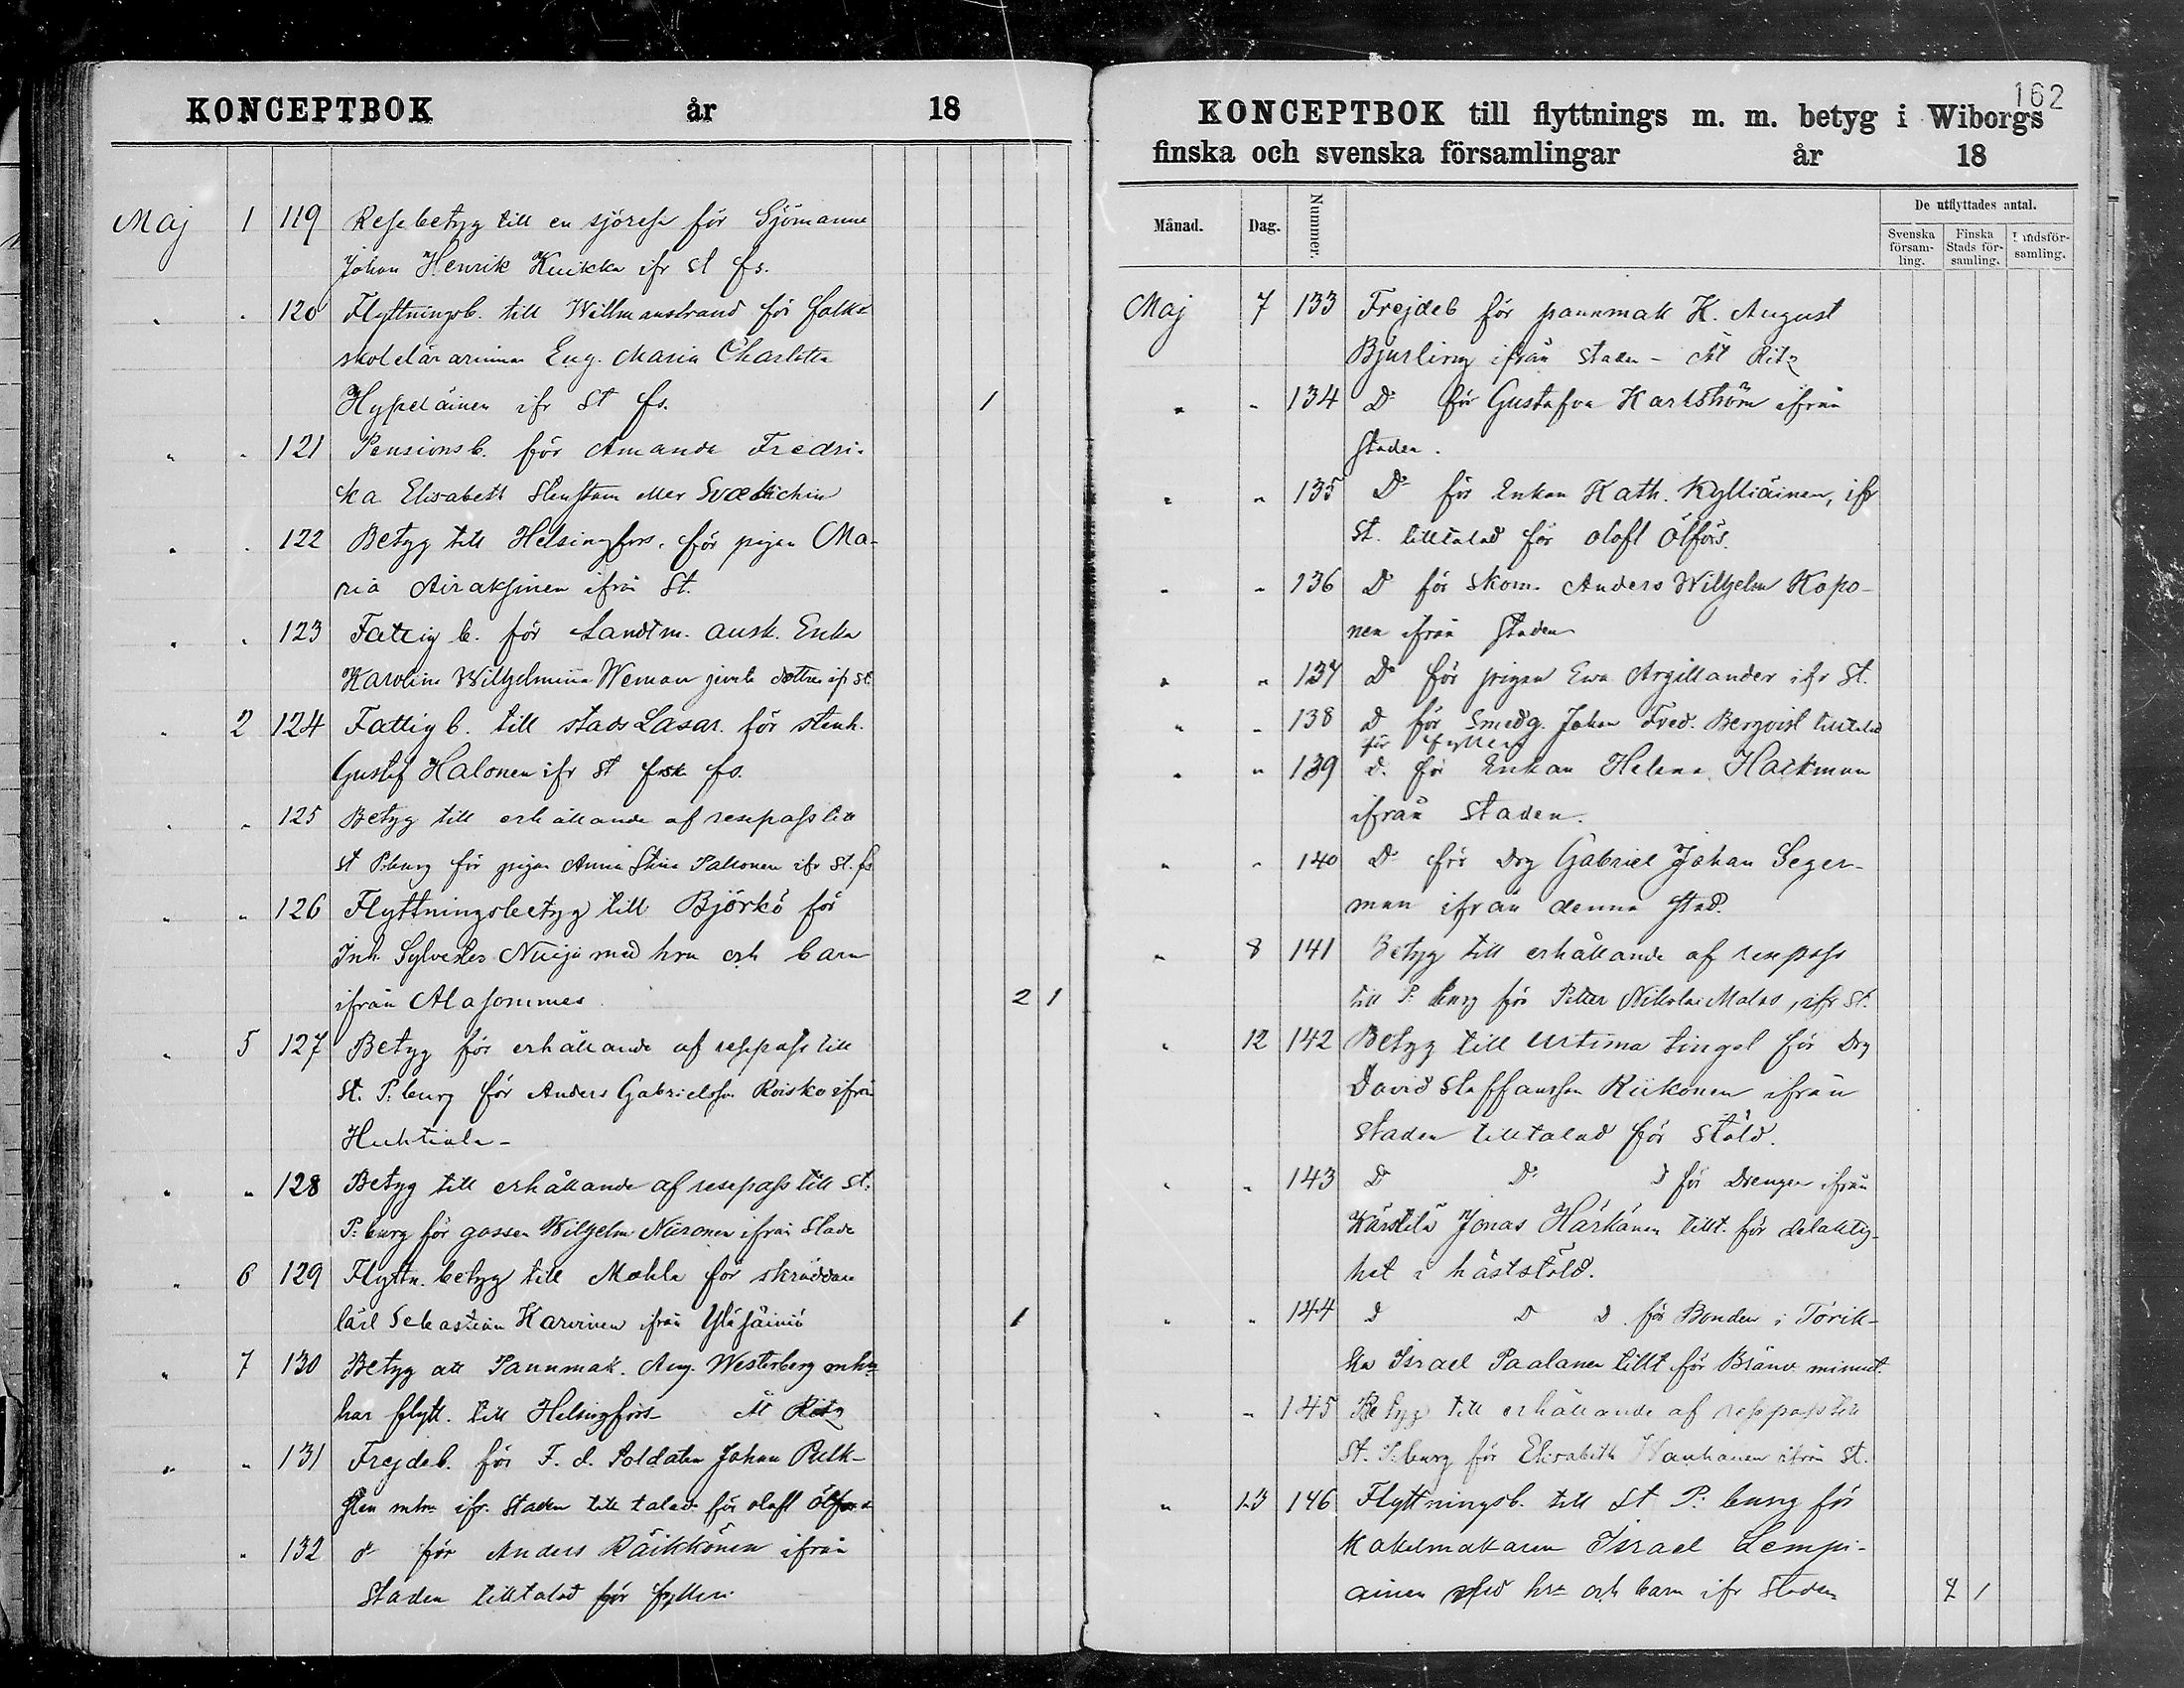 KONCEPTBOK år 18
Maj 1 119 Resebetyg till en sjöresa för Sjömannen
Johan Henrik Kuikka ifr st fs.
" " 120 Flyttningsb. till Willmanstrand för folks
skolelärarinnan Eug. Maria Charlotta
Hypeläinen ifr St fs. 1
" " 121 Pensionsb. för Amanda Fredri-
ka Elisabeth
" " 122 Betyg till Helsingfors, för pigan Ma-
ria Airaksinen ifrån St.
" " 123 Fattig b. för Landtm. ausk. Enka
Karolina Wilhelmina Weman jemte dotter ifr St.
" 2 124 Fattig b. till stads Lasar. för stenh.
Gustaf Halonen ifr St fsk fs.
" " 125 Betyg till erhållande af resepass till
St P:burg för pigan Anna Stina Paltonen ifr St. fs
" " 126 Flyttningsbetyg till Björkö för
Inh. Sylvester Nuija med hru och barn
ifrån Alasommes 2 1
" 5 127 Betyg för erhållande af respass till
St. P:burg för Anders Gabrielsson Roisko ifrån
Huhtiala -
" " 128 Betyg till erhållande af resepass till St.
P:burg för gossen Wilhelm Näronen ifrån Stade
" 6 129 Flyttn. betyg till Mohla för skräddare
lärl Sebastian Karvinen ifrån Yläsäiniö 1
" 7 130 Betyg att Pannmak. Aug. Westerberg mhu
har flytt. till Helsingfors åt Ritz
" " 131 Frejdeb. för F. d. Soldaten Johan Pulk-
ifr. Staden till talad för olofl Ölförs
" 132 d för Anders Räikkönen ifrån
Staden tilltalad för fylleri
162
KONCEPTBOK till flyttnings m. m. betyg i Wiborgs
finska och svenska församlingar år 18
Månad. Dag. Nummer. De utflyttades antal.
Svenska församling. Finska Stads församling. Landsförsamling.
Maj 7 133 Frejdeb för pannmak K. August
Bjurling ifrån staden - åt Ritz
" " 134 D för Gustafva Karlström ifrån
staden.
" " 135 D för Enkan Kath. Kylliäinen, ifr
St. tilltalad för olofl ölförs.
" " 136 D för skom. Anders Wilhelm Kopo-
nen ifrån staden
" " 137 D för pigan Ewa Argillander ifr St.
" " 138 D för Smedg. Johan Fred. Berqvist tilltalad
för fylleri
" " 139 d. för Enkan Helena Hackman
ifrån Staden.
" " 140 D för Drg Gabriel Johan Seger-
man ifrån denna stad.
" 8 141 Betyg till erhållande af resepass
till P:burg för Petter Nikolai Malas, ifr St.
" 12 142 Betyg till urtima tinget för Drg
David Staffansson Riikonen ifrån
Staden tilltalad för stöld.
" " 143 D D D för Drengen ifrån
Kärstilä Jonas Härkönen tillt. för delaktig-
het i häststöld.
" " 144 D D D för Bonden i Törik-
kä Israel Paalanen tillt för Bränv. minut.
" " 145 Betyg till erhållande af respass till
St. P:burg för Elisabeth Wanhanen ifrån St.
" 13 146 Flyttningsb. till St P:burg för
Kakelmakaren Israel Lempi-
äinen med hru och barn ifr Staden 2 1